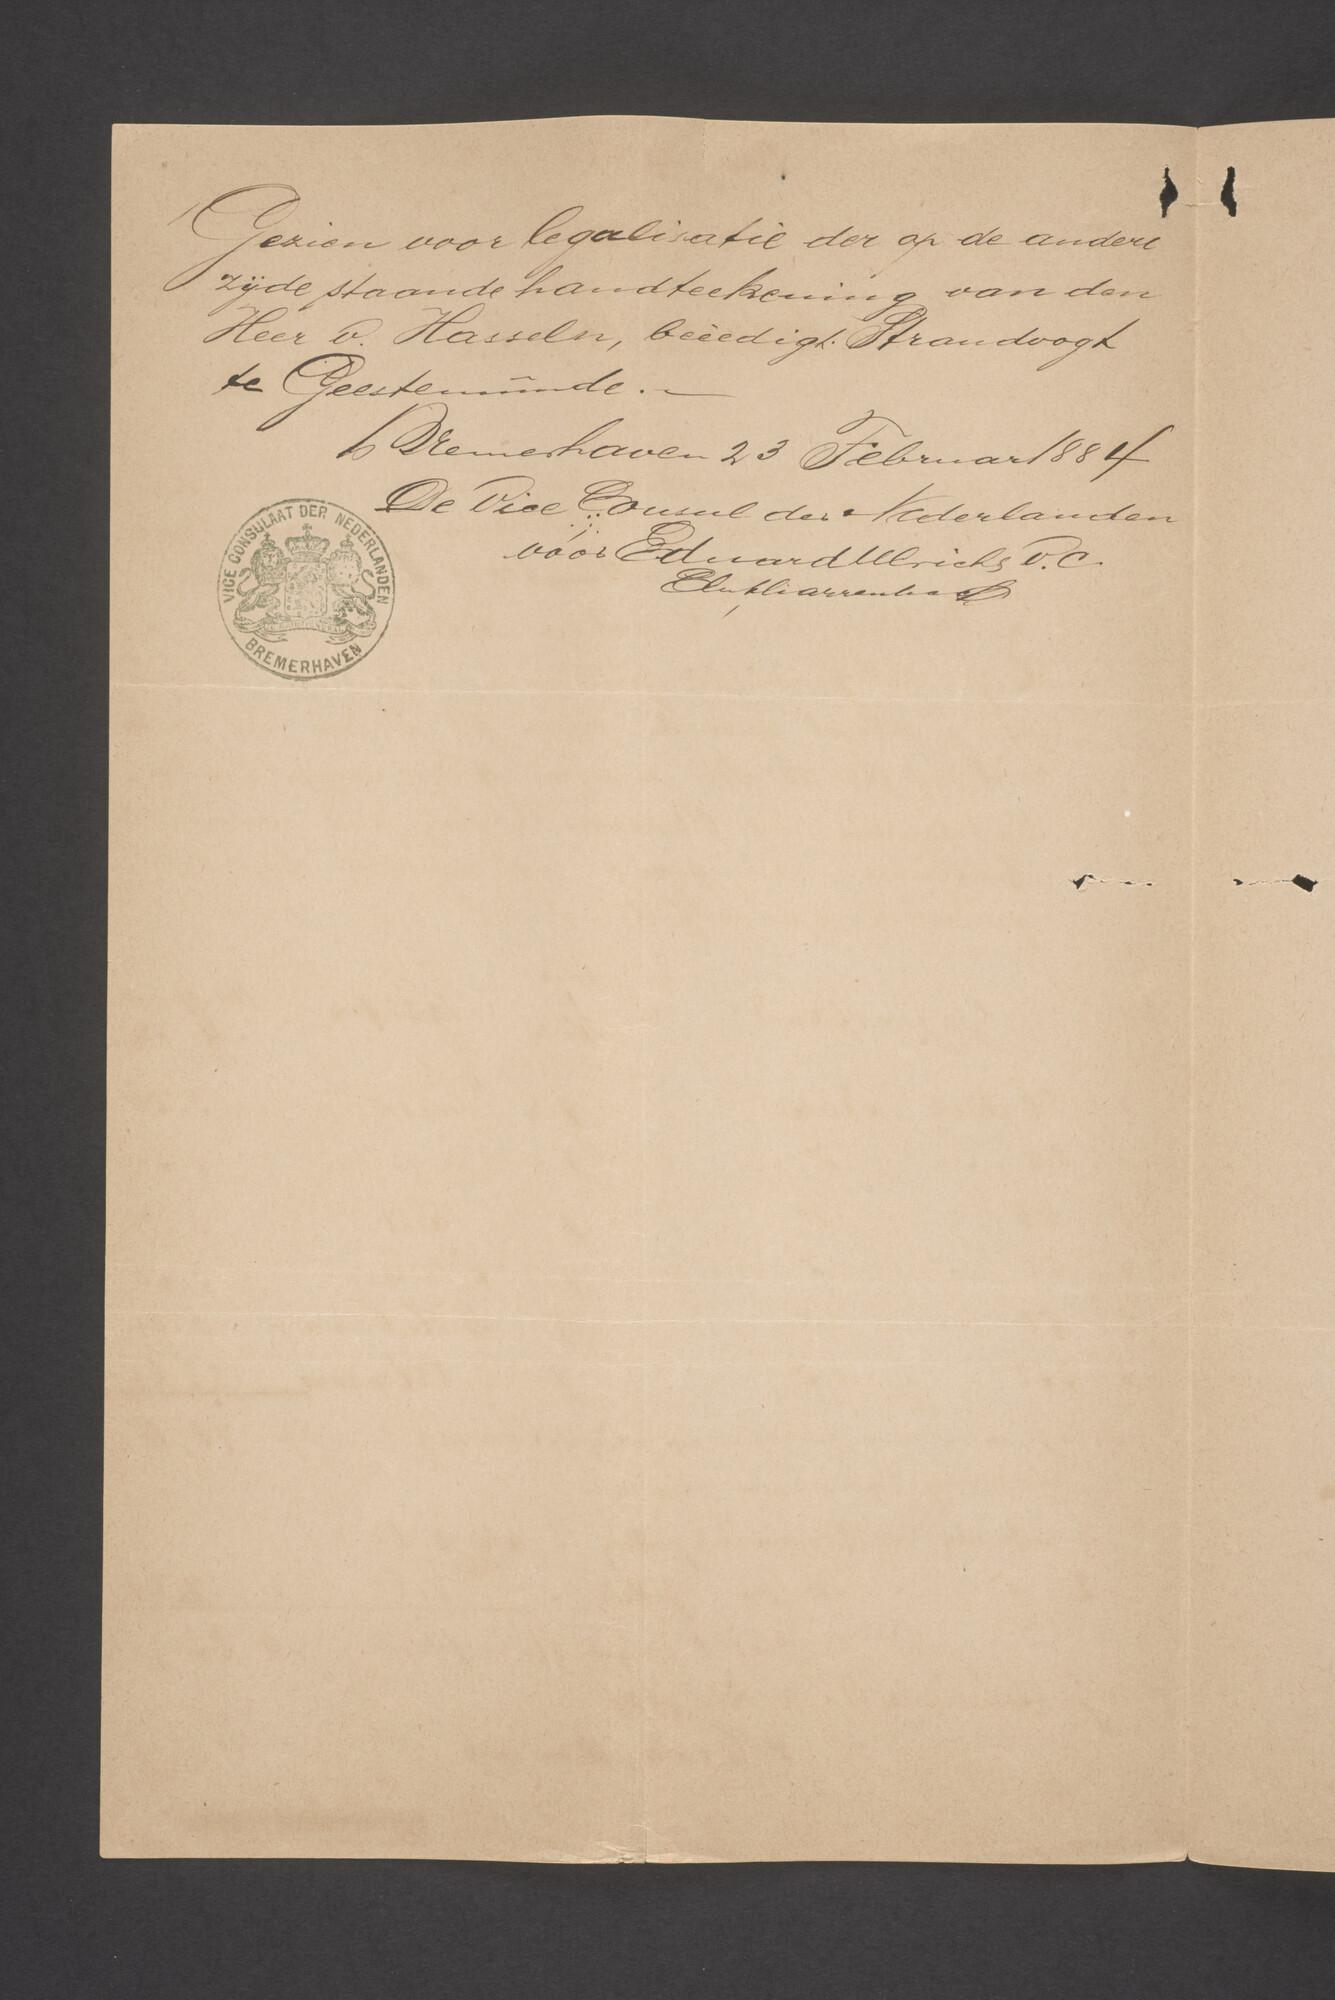 Gezien voor legalisatie der op de andere
zijde staande handteekening van den
Heer v. Hasseln, beëedigt. Strandvogt
te Geestemünde.
Bremerhaven 23 Februar 1884
De Vice Consul der Nederlanden
voor Eduard Ulrichs V. C.
VICE CONSULAAT DER NEDERLANDEN
BREMERHAVEN